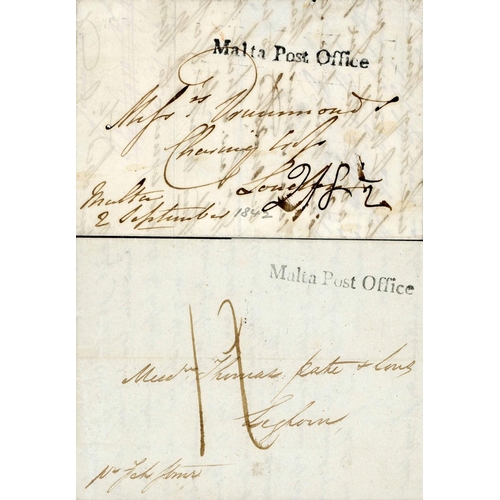 Malta Post Office
Mess.rs Drummond's
Charing Cross
London
2/8½
Malta
2 September 1842
Malta Post Office
12
Thomas Pate & Sons
Leghorn